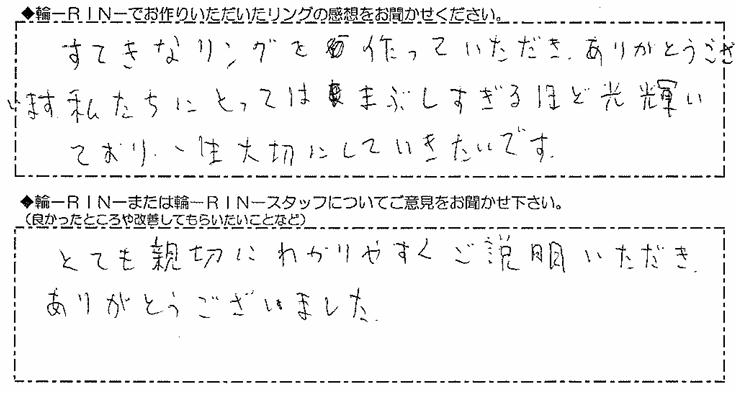 ◆輪−RIN−でお作りいただいたリングの感想をお聞かせください。
すてきなリングを作っていただき、ありがとうござ
います。私たちにとってはまぶしすぎるほど光輝い
ており、一生大切にしていきたいです。
◆輪−RIN−または輪−RIN−スタッフについてご意見をお聞かせ下さい。
(良かったところや改善してもらいたいことなど)
とても親切にわかりやすくご説明いただき、
ありがとうございました。